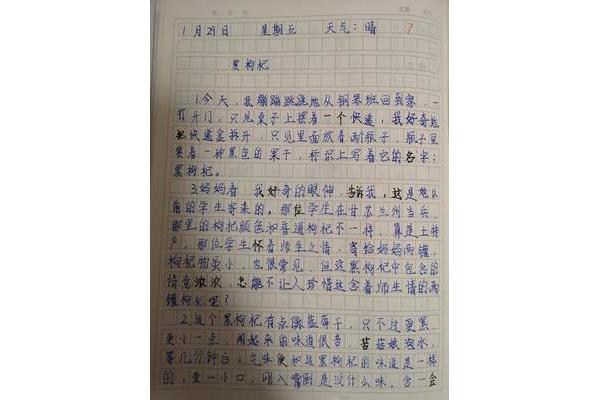 1月29日 星期五 天气：晴 7
黑枸杞
1.今天，我蹦蹦跳跳地从钢琴班回到家，一
打开门，只见桌子上摆着一个快递，我好奇地
把快递盒拆开，只见里面放着两瓶子，瓶子里
装着一种黑色的果干，标识上写着它的名字：
黑枸杞。
3.妈妈看我好奇的眼神，告诉我，这是她以
前的学生寄来的。那位学生在甘苏兰州当兵，
那里的枸杞颜色和普通枸杞不一样，算是土特
产，那位学生怀着师生之情，寄给妈妈两罐，
枸杞物虽小，也很常见，但这黑枸杞中包含的
情意浓浓，怎能不让人珍惜这含着师生情的两
罐枸杞呢？
2.这个黑枸杞有点像蓝莓干，只不过更黑、
更小一点，闻起来的味道很苦，菇娘泡水，
等几分钟后，气味便和这黑枸杞的味道是一样
的，查一小口，刚入嘴倒是没什么味，含一会